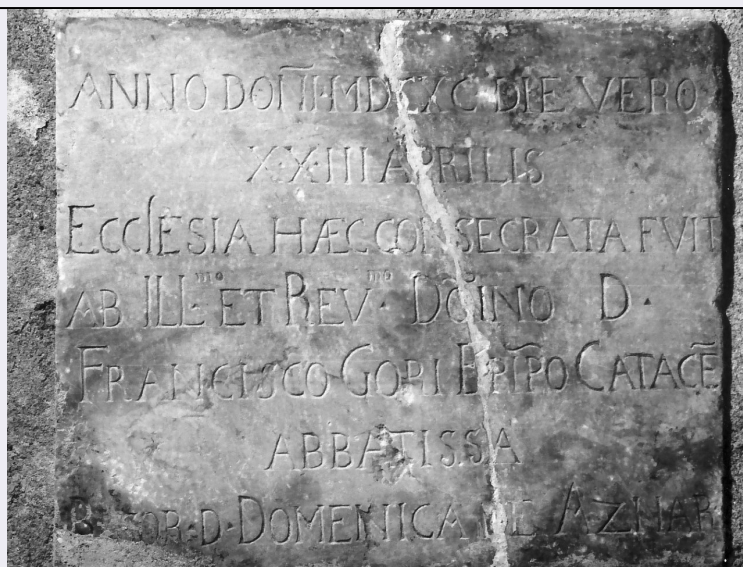 ANNO DOÑI·MDCXC·DIE VERO
X·X·III APRILIS
ECClESIA HÆC CONSECRATA FVIT
AB ILL·ᵐᵒ ET REV·ᵐᵒ DÕINO D·
FRANCISCO·GORI EPĨPO CATACẼ
ABBATISSA
SOR·D·DOMENICA DE AZNAR